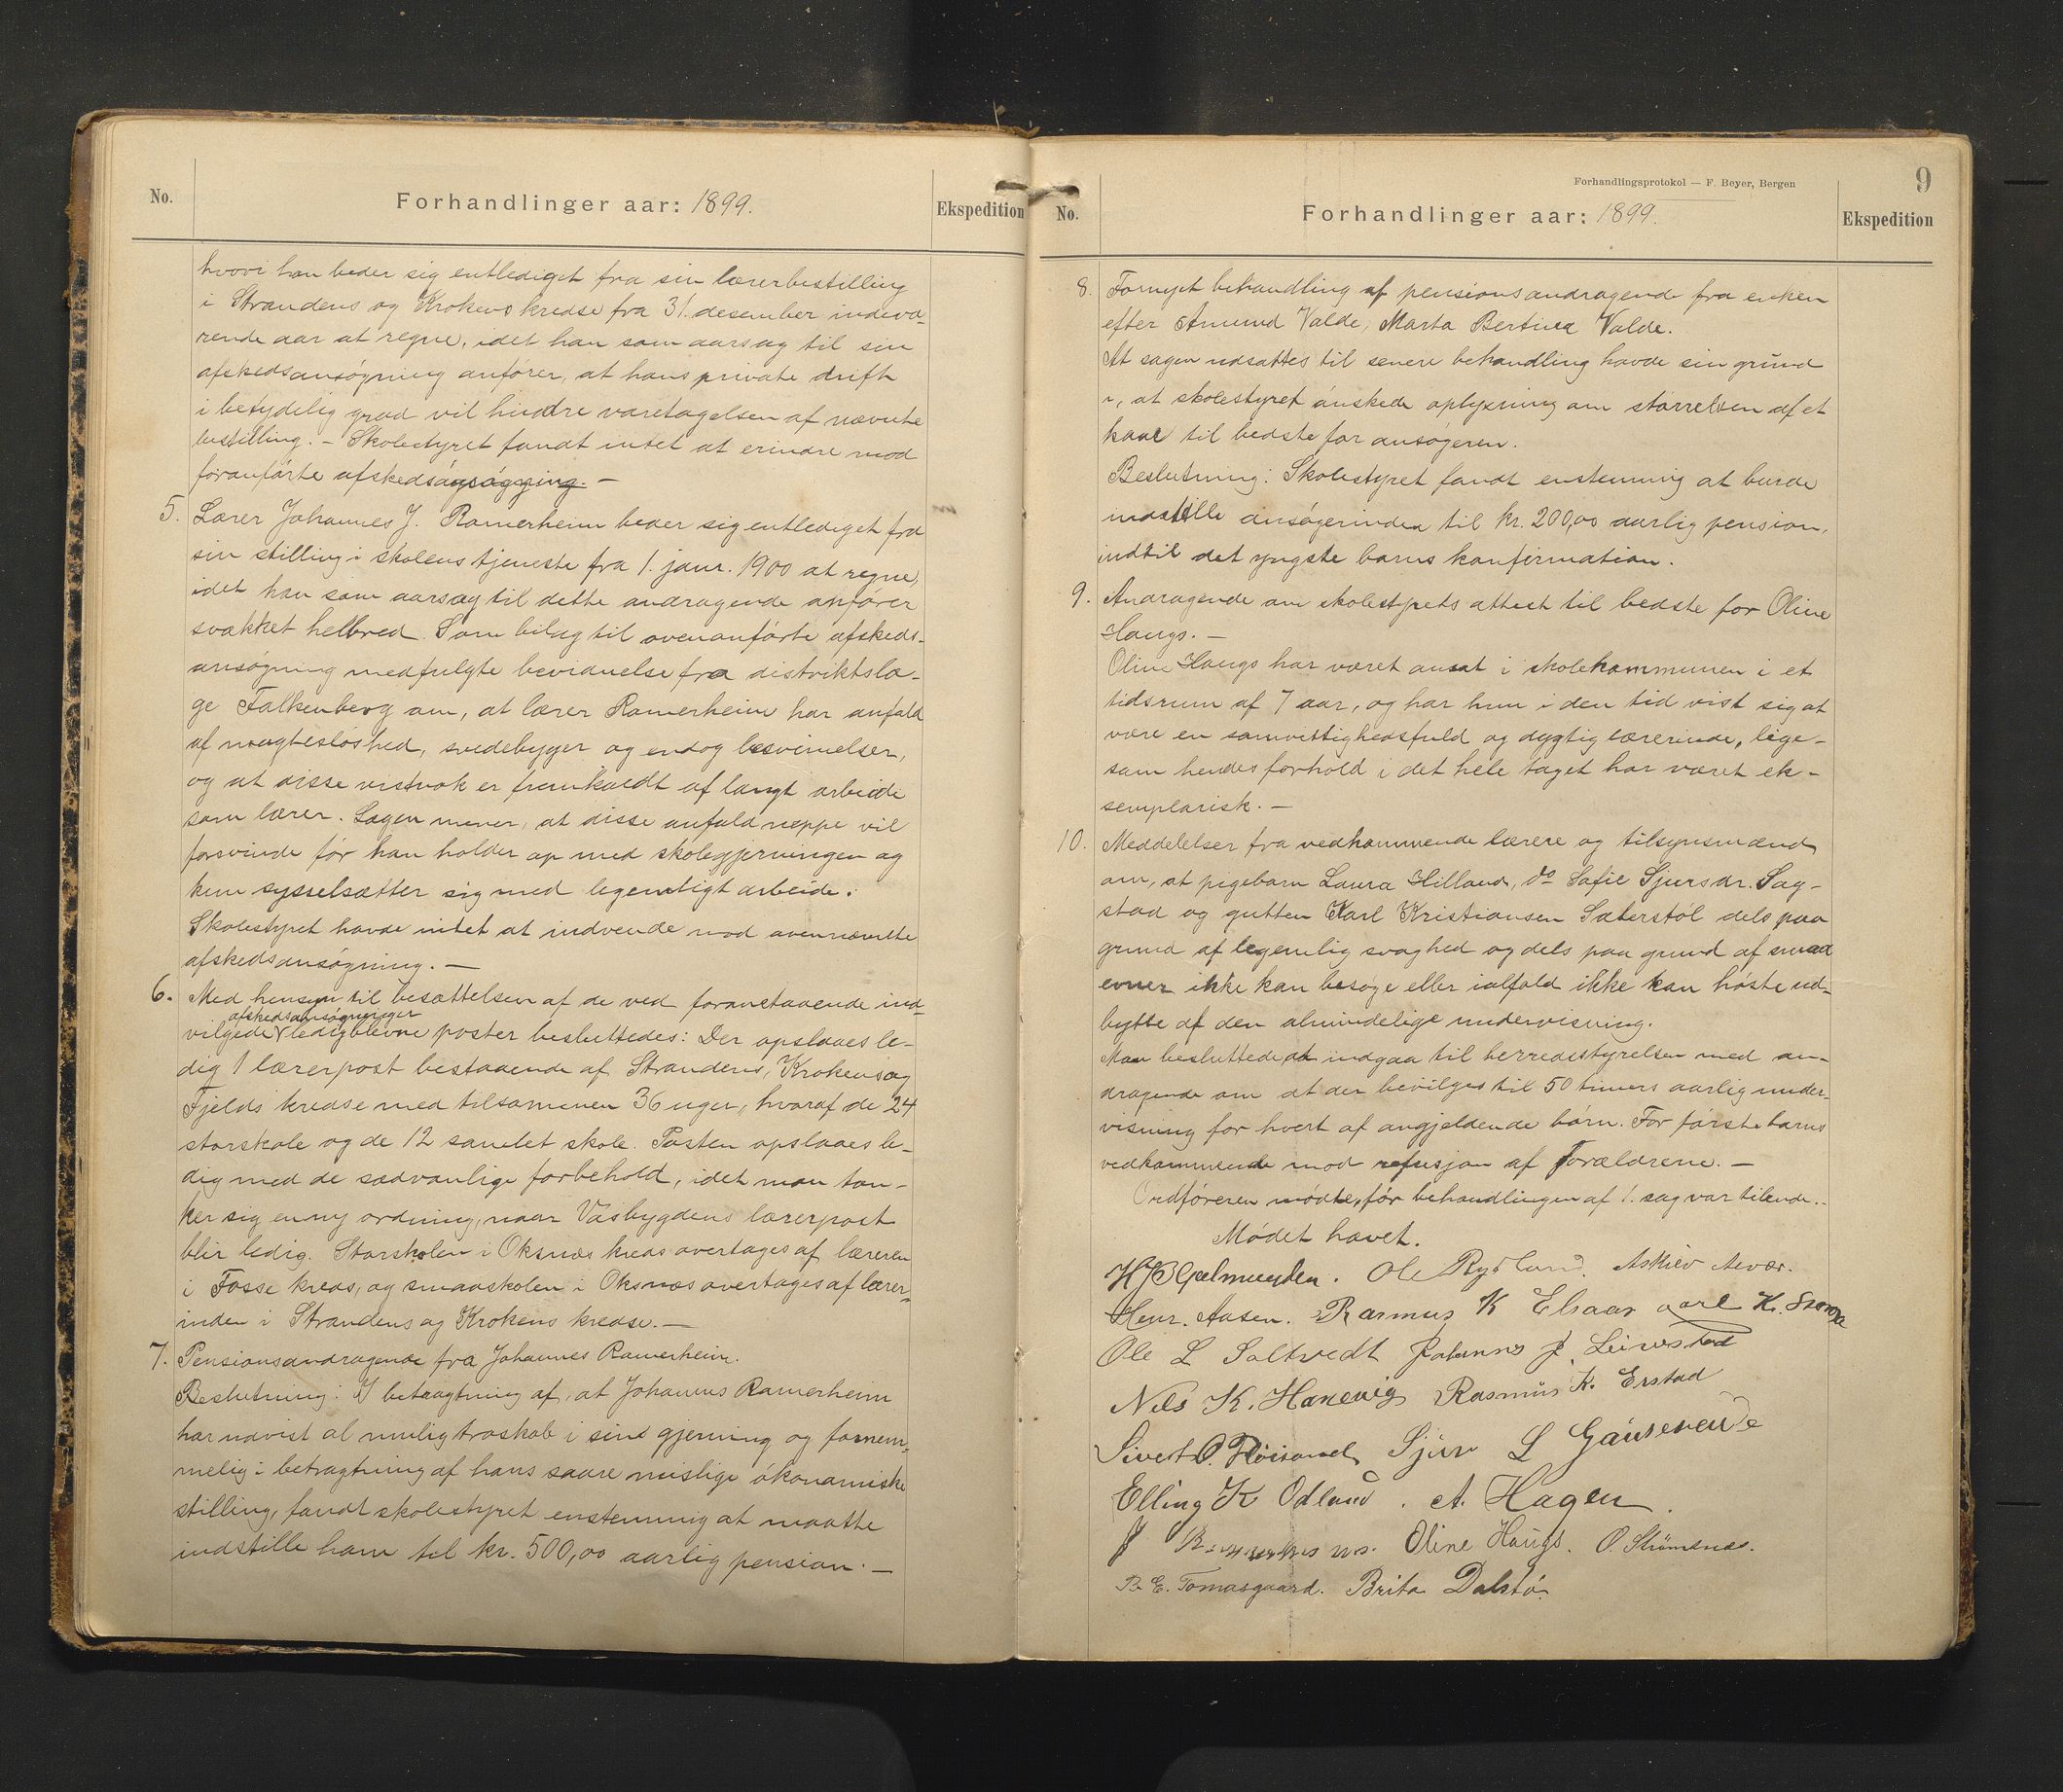 No.
Forhandlinger aar: 1899.
Ekspedition
hvori han beder sig entlediget fra sin lærerbestilling
i Strandens og Krokens kredse fra 31. desember indevæ-
rende aar at regne, idet han som aarsag til sin
afskedsansøgning anfører, at hans private drift
i betydelig grad vil hindre varetagelsen af nævnte
bestilling. – Skolestyret fandt intet at erindre mod
foranførte afskedsansøgning. –
5. Lærer Johannes J. Ramerheim beder sig entlediget fra
sin stilling i skolens tjeneste fra 1. janr. 1900 at regne,
idet han som aarsag til dette andragende anfører
svækket helbred. Som bilag til ovenanførte afskeds-
ansøgning medfulgte bevidnelse fra distriktslæ-
ge Falkenberg om, at lærer Ramerheim har anfald
af magtesløshed, svedebyger og endog besvimelser,
og at disse vistnok er fremkaldt af langt arbeide
som lærer. Lægen mener, at disse anfald neppe vil
forsvinde før han holder op med skolegjerningen og
kun sysselsætter sig med legemligt arbeide.
Skolestyret havde intet at indvende mod ovennævnte
afskedsansøgning. –
6. Med hensyn til besættelsen af de ved foranstaaende ind-
afskedsansøgninger
vilgede ledigblevne poster besluttedes: Der opslaaes le-
dig 1 lærerpost bestaaende af Strandens, Krokens og
Fjelds kredse med tilsammen 36 uger, hvoraf de 24
storskole og de 12 samlet skole. Posten opslaaes le-
dig med de sædvanlige forbehold, idet man tæn-
ker sig en ny ordning, naar Vasbygdens lærerpost
blir ledig. Storskolen i Oksnæs kreds overtages af læreren
i Fosse kreds, og smaaskolen i Oksnæs overtages af lærer-
inden i Strandens og Krokens kredse. –
7. Pensionsandragende fra Johannes Ramerheim.
Beslutning: I betragtning af, at Johannes Ramerheim
har udvist al mulig troskab i sin gjerning og fornem-
melig i betragtning af hans saare mislige økonomiske
stilling, fandt skolestyret enstemmig at maatte
indstille ham til kr. 500,00 aarlig pension. –
Forhandlingsprotokol — F. Beyer, Bergen
9
No.
Forhandlinger aar: 1899.
Ekspedition
8. Fornyet behandling af pensionsandragende fra enken
efter Amund Valde, Marta Bertina Valde.
At sagen udsattes til senere behandling havde sin grund
i, at skolestyret ønskede oplysning om størrelsen af et
kaar til bedste for ansøgeren.
Beslutning: Skolestyret fandt enstemmig at burde
indstille ansøgerinden til kr. 200,00 aarlig pension,
indtil det yngste barns konfirmation.
9. Andragende om skolestyrets attest til bedste for Oline
Haugs. –
Oline Haugs har været ansat i skolekommunen i et
tidsrum af 7 aar, og har hun i den tid vist sig at
være en samvittighedsfuld og dygtig lærerinde, lige-
som hendes forhold i det hele taget har været ek-
semplarisk. –
10. Meddelelser fra vedkommende lærere og tilsynsmænd
om, at pigebarn Laura Hilland, do Sofie Sjursdr. Sag-
stad og gutten Karl Kristiansen Sæterstøl dels paa
grund af legemlig svaghed og dels paa grund af smaa
evner ikke kan besøge eller ialfald ikke kan høste ud-
bytte af den almindelige undervisning.
Man besluttede at indgaa til herredsstyrelsen med an-
dragende om at der bevilges til 50 timers aarlig under-
visning for hvert af angjeldende børn. For første barns
vedkommende mod refusjon af forældrene. –
Ordføreren mødte, før behandlingen af 1. sag var tilende. –
Mødet hævet.
H B Gjelmuyden. Ole Rydland.
Henr. Aasen. Rasmus K Elsaas
Ole L Saltvedt Johannes J. Leirvstad
Nils K. Hanevig Rasmus K. Erstad
Sivert O. Sjur L
Elling K Odland. A. Hagen.
J Oline Haugs. O. Strømsnæs.
B. E. Tomasgaard. Brita Dalstø.